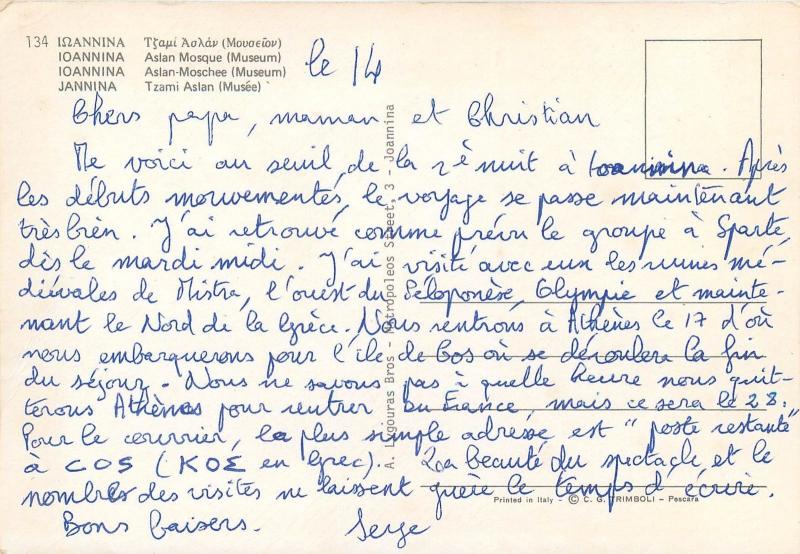 134 ΙΩΑΝΝΙΝΑ Τζαμί Ἀσλάν (Μουσεῖον)
IOANNINA Aslan Mosque (Museum)
IOANNINA Aslan-Moschee (Museum)
JANNINA Tzami Aslan (Musée)
le 14
Chers papa, maman et Christian
Me voici au seuil de la 2è nuit à Ioannina. Après
les débuts mouvementés, le voyage se passe maintenant
très bien. J'ai retrouvé comme prévu le groupe à Sparte,
dès le mardi midi. J'ai visité avec eux les ruines mé-
diévales de Mistra, l'ouest du Péloponèse, Olympie et mainte-
nant le Nord de la Grèce. Nous rentrons à Athènes le 17 d'où
nous embarquerons pour l'île de Cos où se déroulera la fin
du séjour. Nous ne savons pas à quelle heure nous quit-
terons Athènes pour rentrer en France, mais ce sera le 28.
Pour le courrier, la plus simple adresse est "poste restante"
à COS (ΚΟΣ en Grec). La beauté du spectacle et le
nombres des visites ne laissent guère le temps d'écrire.
Bons baisers. Serge
A. Lagouras Bros - Metropoleos Street, 3 - Joannina
Printed in Italy - © C. G. TRIMBOLI - Pescara